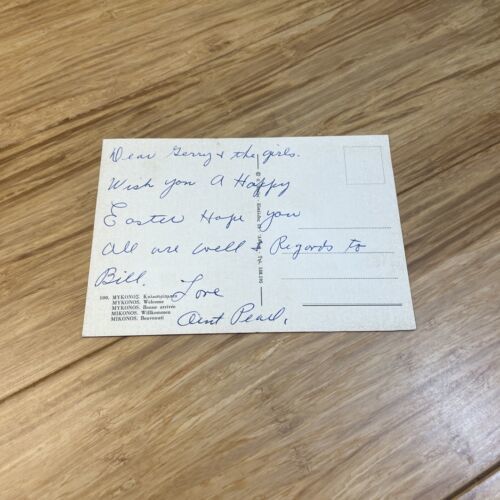 Dear Gerry & the girls.
Wish you A Happy
Easter Hope you
All are well & Regards to
Bill. Love
Aunt Pearl,
100. ΜΥΚΟΝΟΣ
MYKONOS. Welcome
MYKONOS. Bonne arrivée
MIKONOS. Willkommen
MIKONOS. Benvenuti